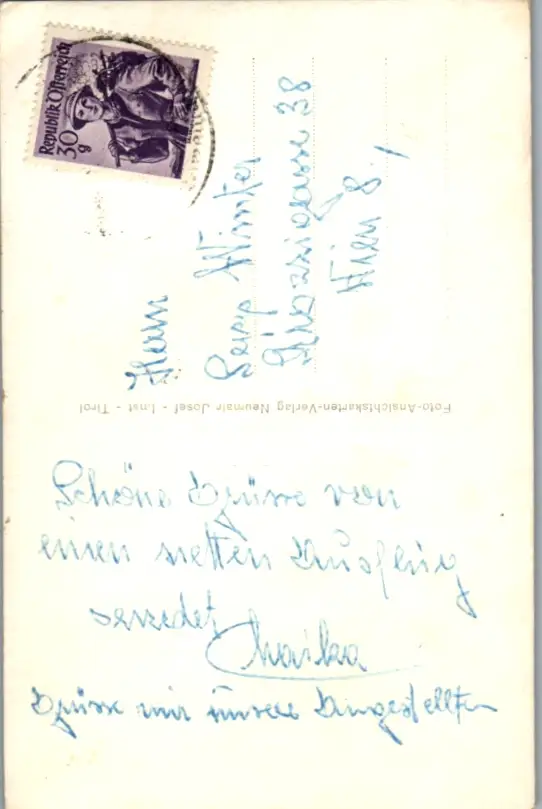 Republik Österreich
30 g
Herrn
Sepp Winter
Wien 8,
Foto-Ansichtskarten-Verlag Neumair Josef - Imst - Tirol
Schöne Grüsse von
einen netten Ausflug
sendet
Grüsse mir unsere Angestellten